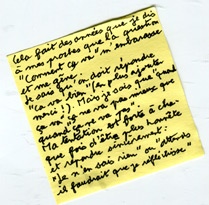 Cela fait des années que je dis
à mes proches que la question
"Comment ça va" m'embarrasse
et me gêne.
Je sais qu'on doit répondre
"ça va" bien "(en plus ajouter
merci !). Mais je sais que quand
ça va, ça va pas mieux que
quand ça ne va pas".
Ma tentation est forte à cha-
que fois d'être plus honnête
et répondre sincèrement :
"Je n'en sais rien" ou "attends
il faudrait que j'y réfléchisse"